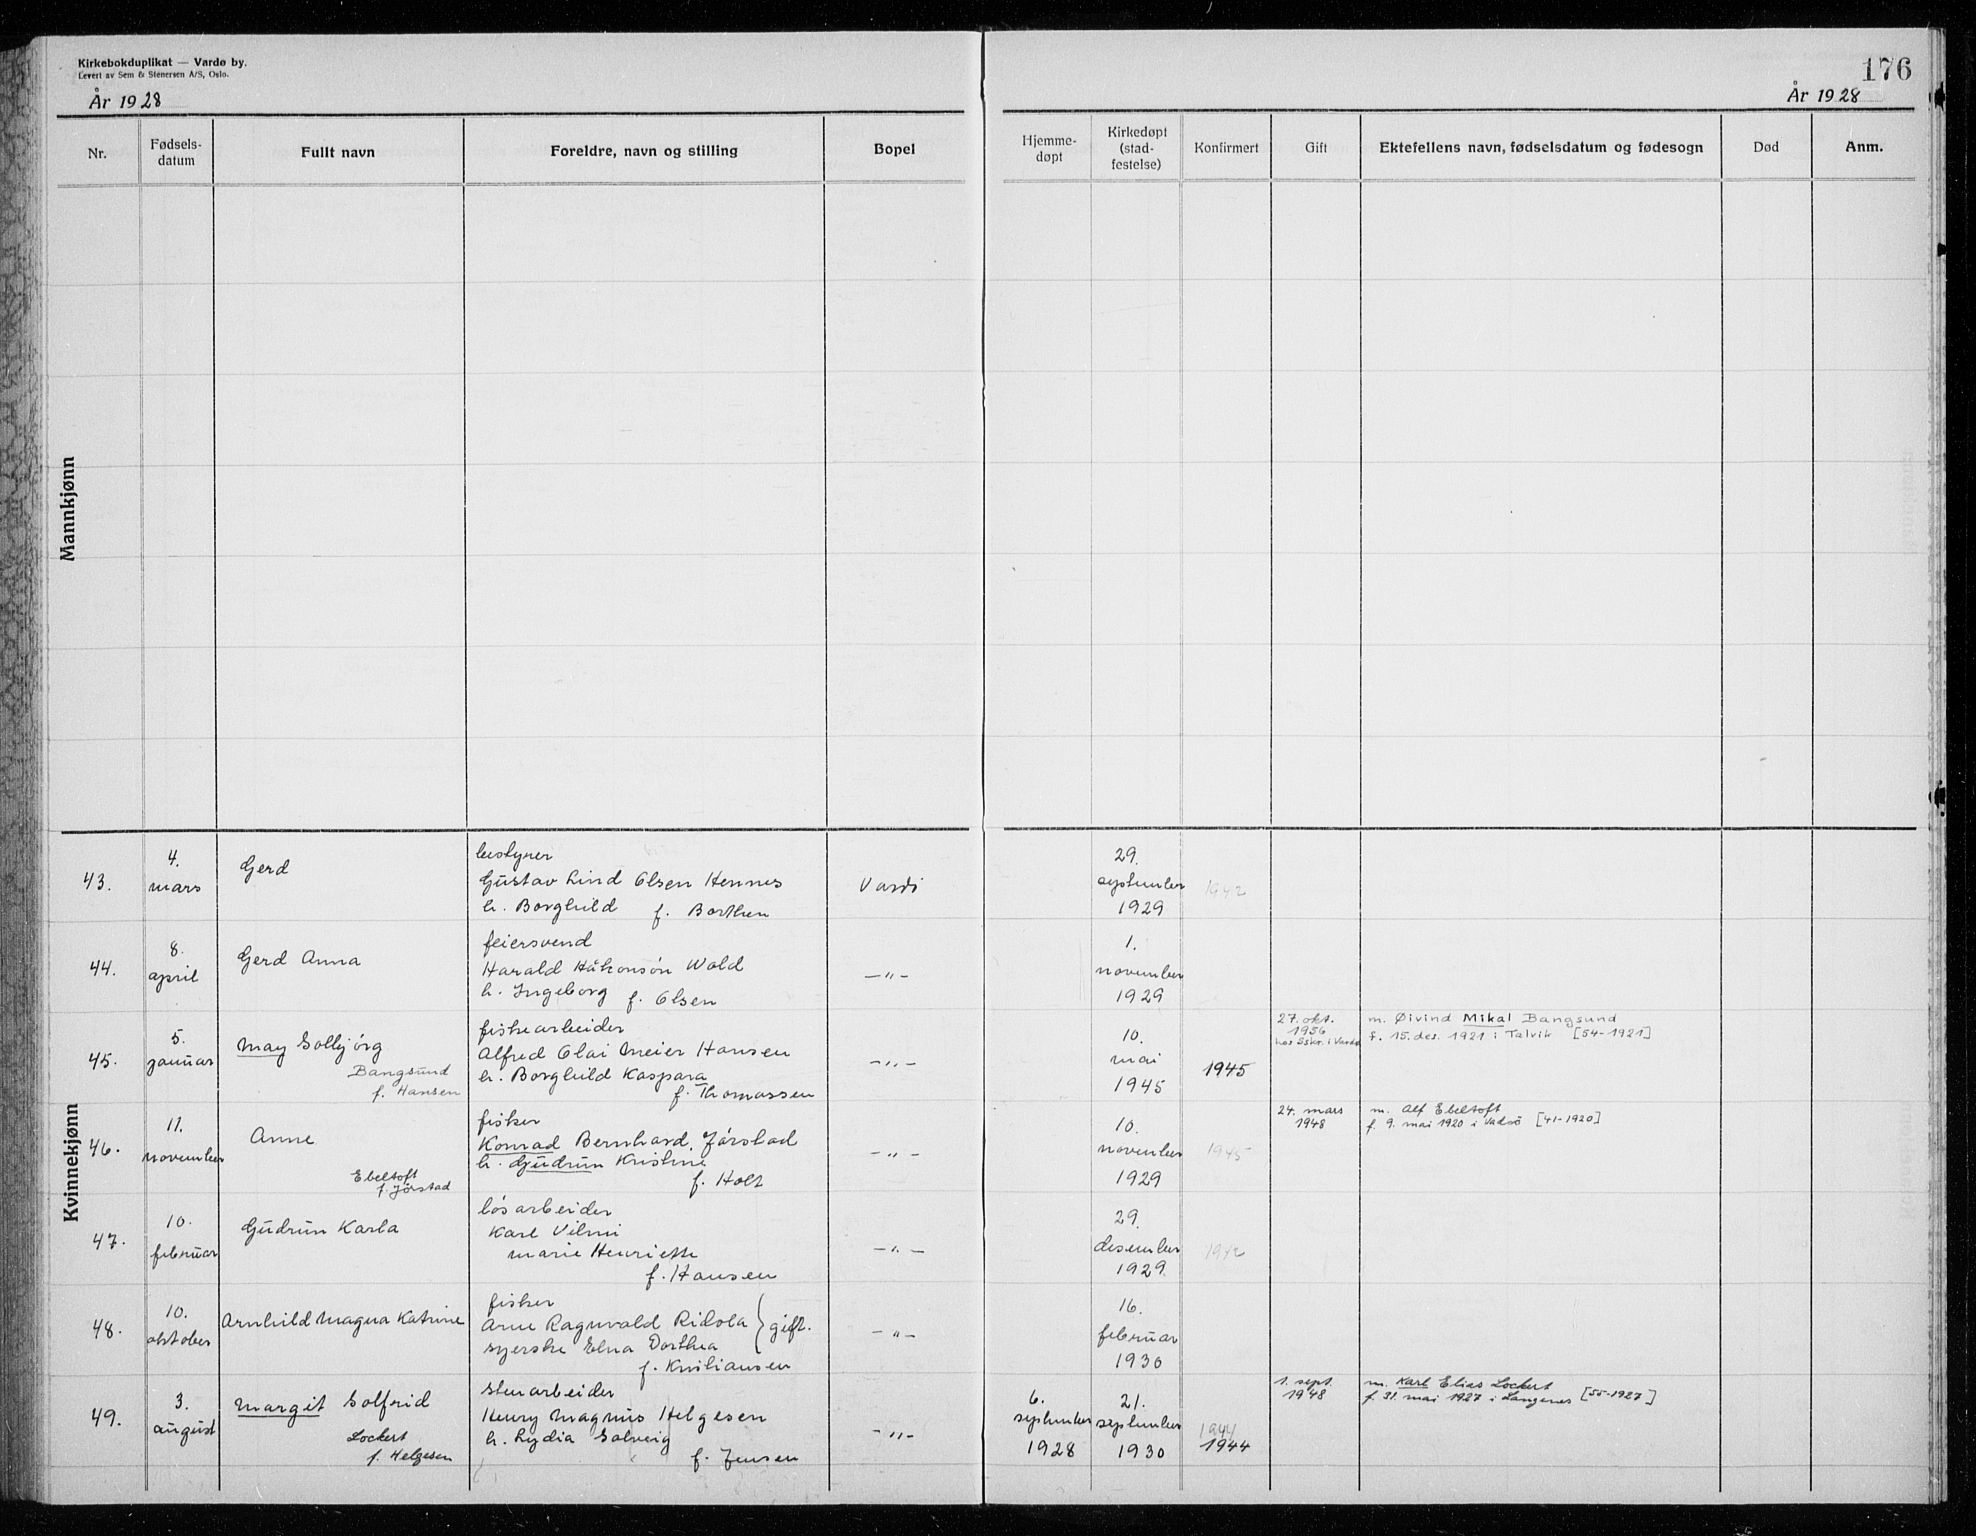 Kirkebokduplikat — Vardø by.
Levert av Sem & Stenersen A/S, Oslo.
År 1928
176
År 1928
Nr.
Fødsels-
datum
Fullt navn
Foreldre, navn og stilling
Bopel
Hjemme-
døpt
Kirkedøpt
(stad-
festelse)
Konfirmert
Gift
Ektefellens navn, fødselsdatum og fødesogn
Død
Anm.
Mannkjønn
Kvinnekjønn
43.
4.
mars
Gerd
bestyrer
Gustav Lind Olsen Hennes
h. Borghild f. Borthen
Vardö
29.
september
1929
1942
44.
8.
april
Gerd Anna
feiersvend
Harald Håkonsön Wold
h. Ingeborg f. Olsen
—"—
1.
november
1929
45.
5.
januar
May Solbjörg
Bangsund
f. Hansen
fiskearbeider
Alfred Olai Meier Hansen
h. Borghild Kaspara
f. Thomassen
—"—
10.
mai
1945
1945
27. okt.
1956
hos Sskr. i Vardø
m. Øivind Mikal Bangsund
f. 15. des. 1921 i Talvik [54-1921]
46.
11.
november
Anne
Ebeltoft
f. Jörstad
fisker
Konrad Bernhard Jörstad
h. Gudrun Kristine
f. Holt
—"—
10.
november
1929
1945
24. mars
1948
m. Alf Ebeltoft
f. 9. mai 1920 i Vadsö [41-1920]
47.
10.
februar
Gudrun Karla
lösarbeider
Karl Vilmi
Marie Henriette
f. Hansen
—"—
29.
desember
1929
1942
48.
10.
oktober
Arnhild Magna Katrine
fisker
Arne Ragnvald Ridola
syerske Elna Dorthea
f. Kristiansen
gift.
—"—
16.
februar
1930
49.
3.
august
Margit Solfrid
Lockert
f. Helgesen
stenarbeider
Henry Magnus Helgesen
h. Lydia Solveig
f. Jensen
—"—
6.
september
1928
21.
september
1930
1944
1944
1. sept.
1948
m. Karl Elias Lockert
f. 31. mai 1927 i Langenes [55-1927]